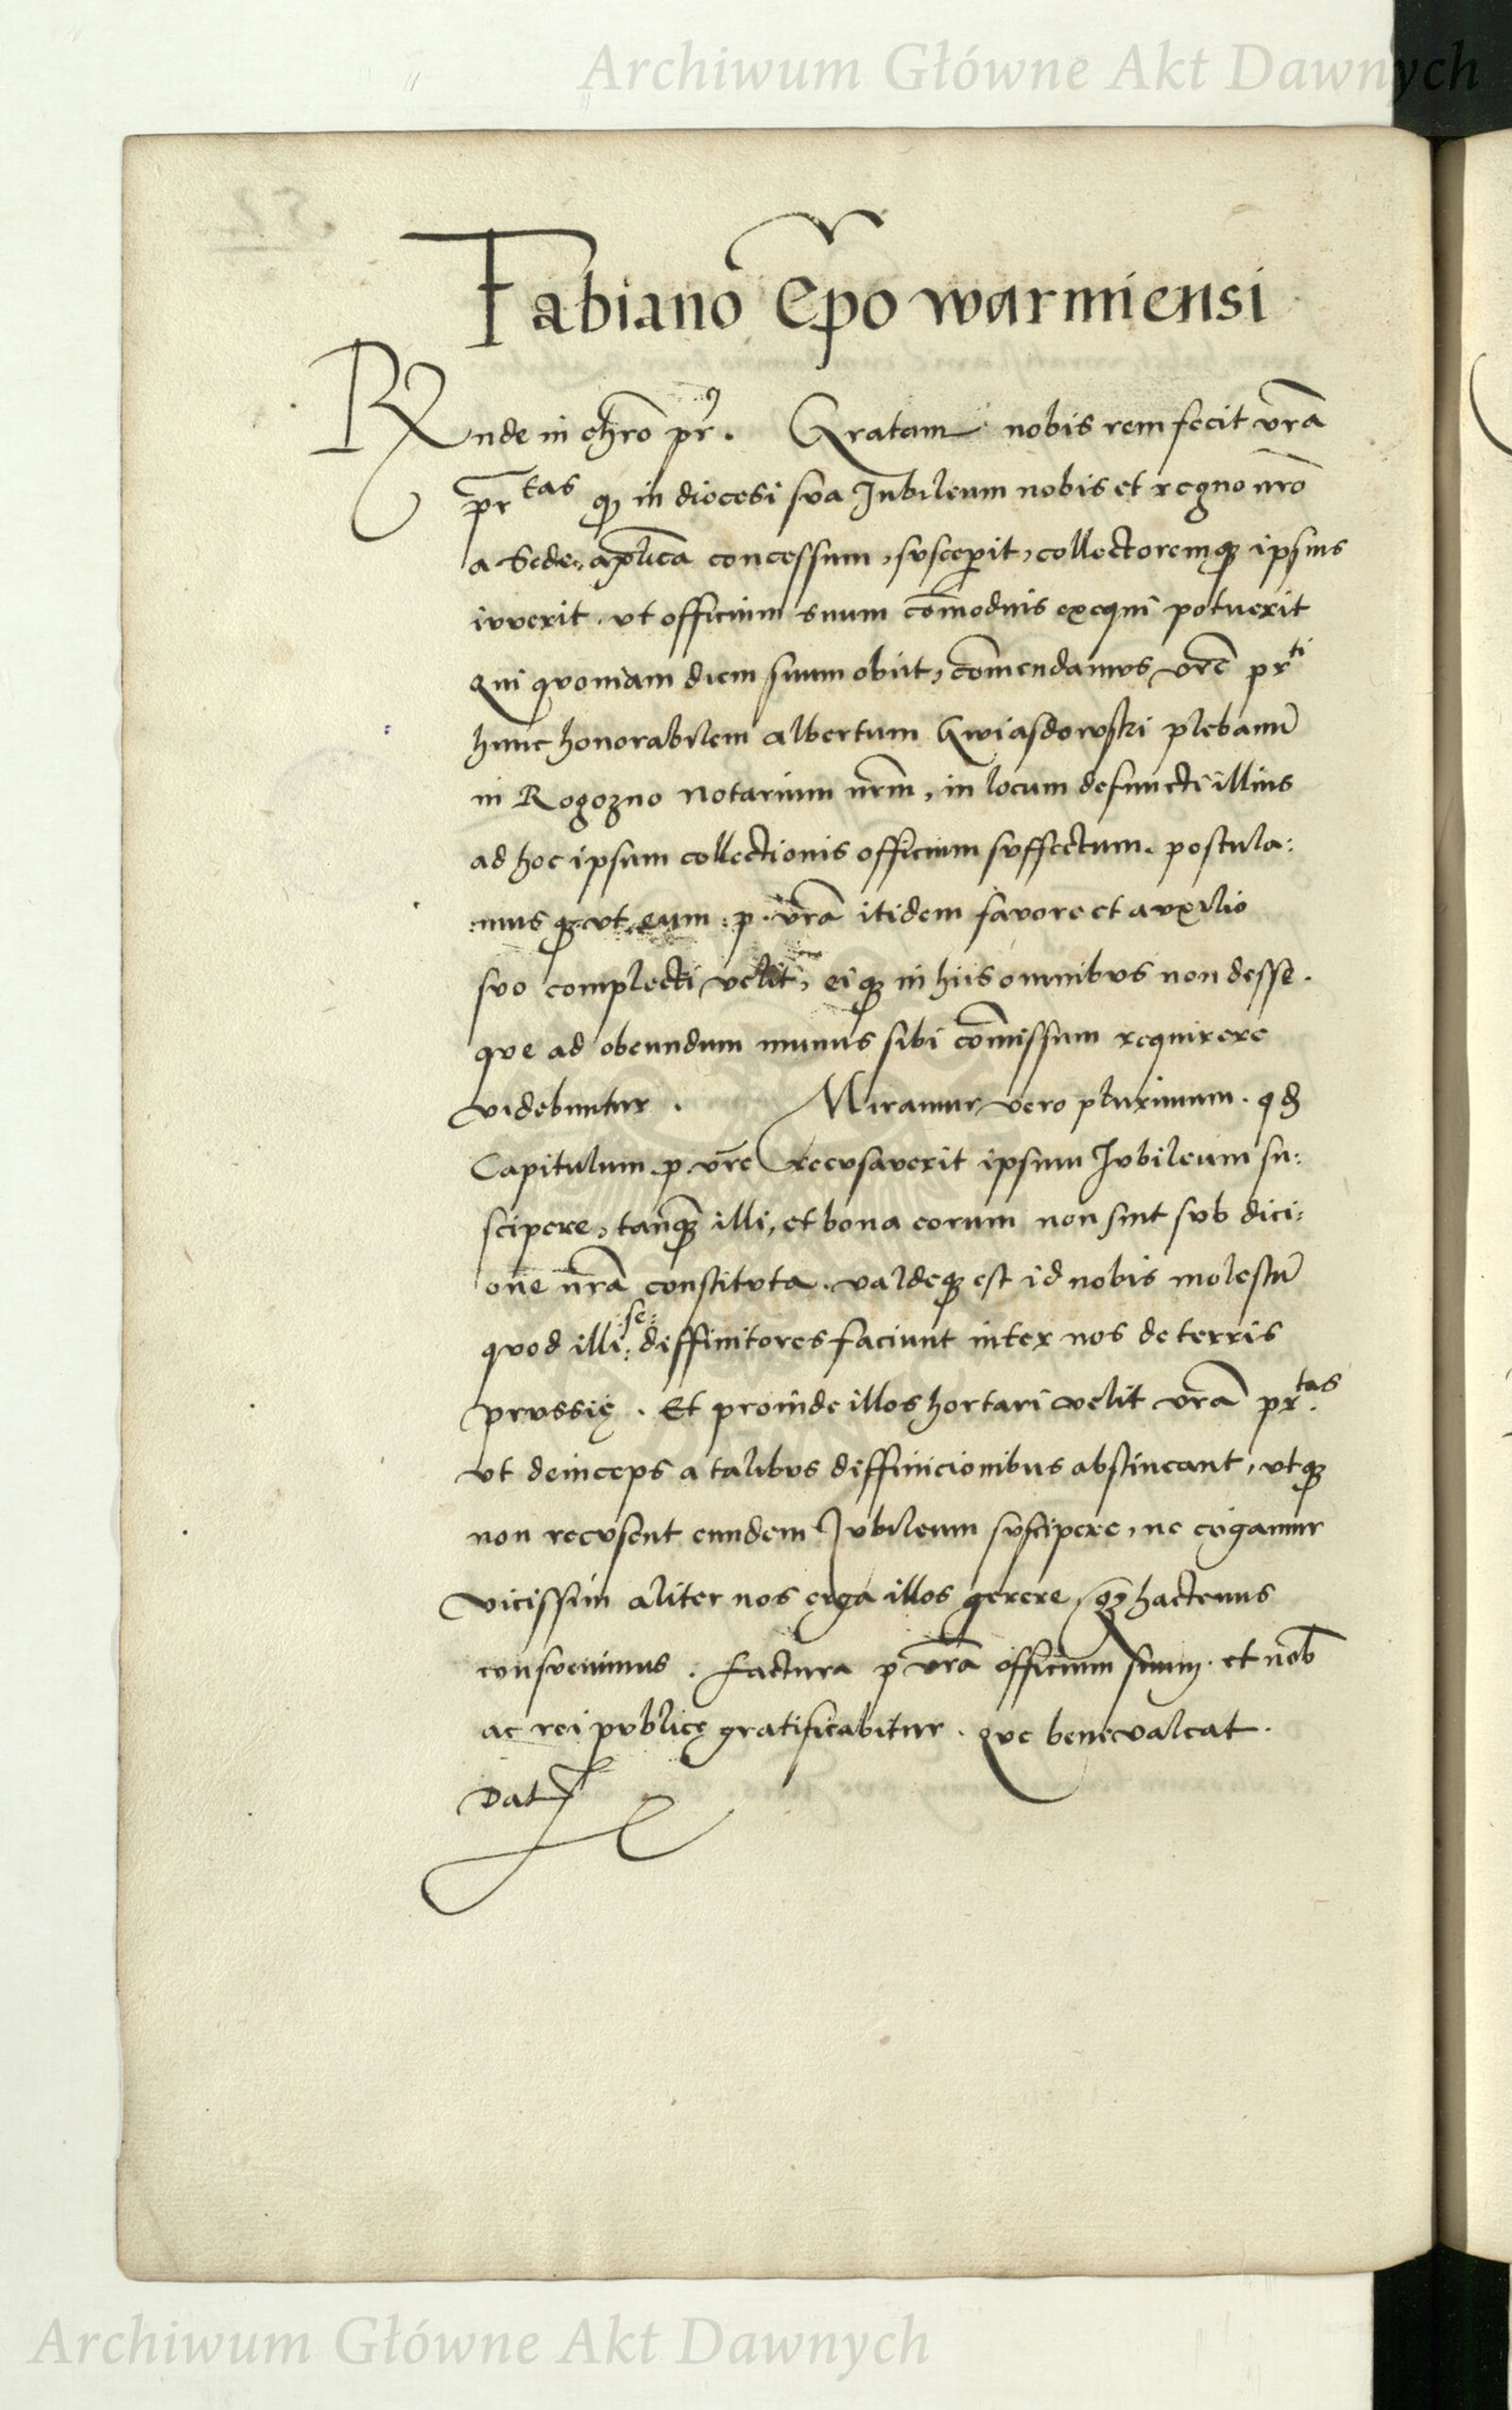 Archiwum Główne Akt Dawnych
Fabiano Ep̅o warmiensi
Rnde in chr̅o pr̅. Gratam nobis rem fecit vr̅a
pr̅tas qꝫ in diocesi sua Jubileum nobis et regno nr̅o
a Sede ap̅lica concessum, susceperit, collectoremqꝫ ipsius
iuverit, ut officium suum co̅modius exequi potuerit
Qui quoniam diem suum obiit, co̅mendamus vr̅e prti
hunc honorabilem albertum Gwiasdowski plebanu̅
in Rogozno notarium nr̅m, in locum defuncti illius
ad hoc ipsum collectionis officium suffectum. postula:
:mus qꝫ ut eum : p. vr̅a itidem favore et auxilio
suo complecti velit, eiqꝫ in hiis omnibus non desse.
que ad obeundum munus sibi co̅missum requirere
videbuntur. Miramur vero plurimum. qd
Capitulum p. vr̅e recusaverit ipsum Jubileum su:
scipere, tanqꝫ illi, et bona eorum non sint sub dici:
one nr̅a constituta. valdeqꝫ est id nobis molestu̅
quod illi :se: diffinitores faciunt inter nos de terris
prussię. Et proinde illos hortari velit vr̅a pr̅tas.
ut deinceps a talibus diffinicionibus abstineant, utqꝫ
non recusent eundem Jubileum suscipere, ne cogamur
vicissim aliter nos erga illos gerere, qꝫ hactenus
consuevimus. factura p vr̅a officium suum. et nob̅
ac rei publicę gratificabitur. Que bene valeat.
Dat
Archiwum Główne Akt Dawnych